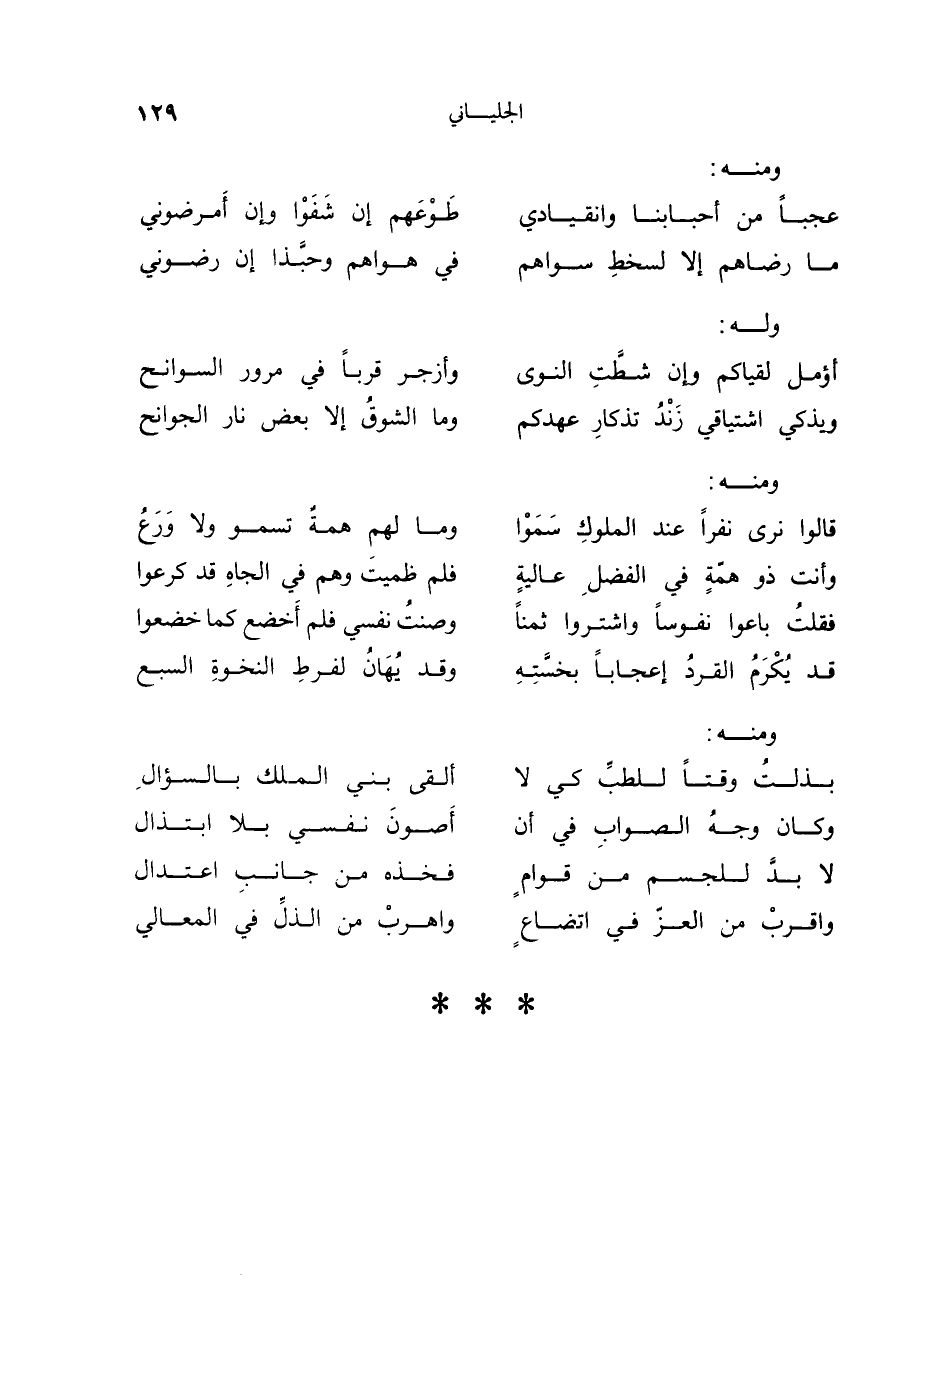 الجليـــاني ١٢٩
ومنـــه :
عجبـاً من أحبـابنـا وانقيـادي طَـوْعَهم إن شَفَوْا وإن أَمـرضوني
مـا رضاهم إلا لسخطِ سـواهم في هـواهم وحبَّـذا إن رضـوني
ولـــه :
أؤمـل لقياكم وإن شطَّتِ النوى وأزجـر قربـاً في مرور السـوانـح
ويذكي اشتياقي زَنْدُ تذكارِ عهدكم وما الشوقُ إلا بعض نار الجوانح
ومنـــه :
قالوا نرى نفراً عند الملوكِ سَمَوْا ومـا لهم همـةٌ تسمـو ولا وَرَعُ
وأنت ذو همّةٍ في الفضلِ عـاليةٍ فلم ظميتَ وهم في الجاهِ قد كرعوا
فقلتُ باعوا نفـوسـاً واشتـروا ثمنـاً وصنتُ نفسي فلم أَخضع كما خضعوا
قـد يُكْرَمُ القـردُ إعجـابـاً بخسَّتِهِ وقـد يُهَانُ لفـرطِ النخـوةِ السبـع
ومنـــه :
بـذلـتُ وقتـاً لـلطبِّ كـي لا ألـقى بـنـي الـمـلك بـالـسـؤالِ
وكـان وجـهُ الـصوابِ في أن أَصـونَ نـفـسـي بـلا ابـتـذال
لا بـدَّ لـلجـسـم مـن قـوامٍ فـخـذه مـن جـانـبِ اعـتـدال
واقـربْ من العـزّ فـي اتضـاعٍ واهـربْ من الـذلِّ في المعـالي
* * *